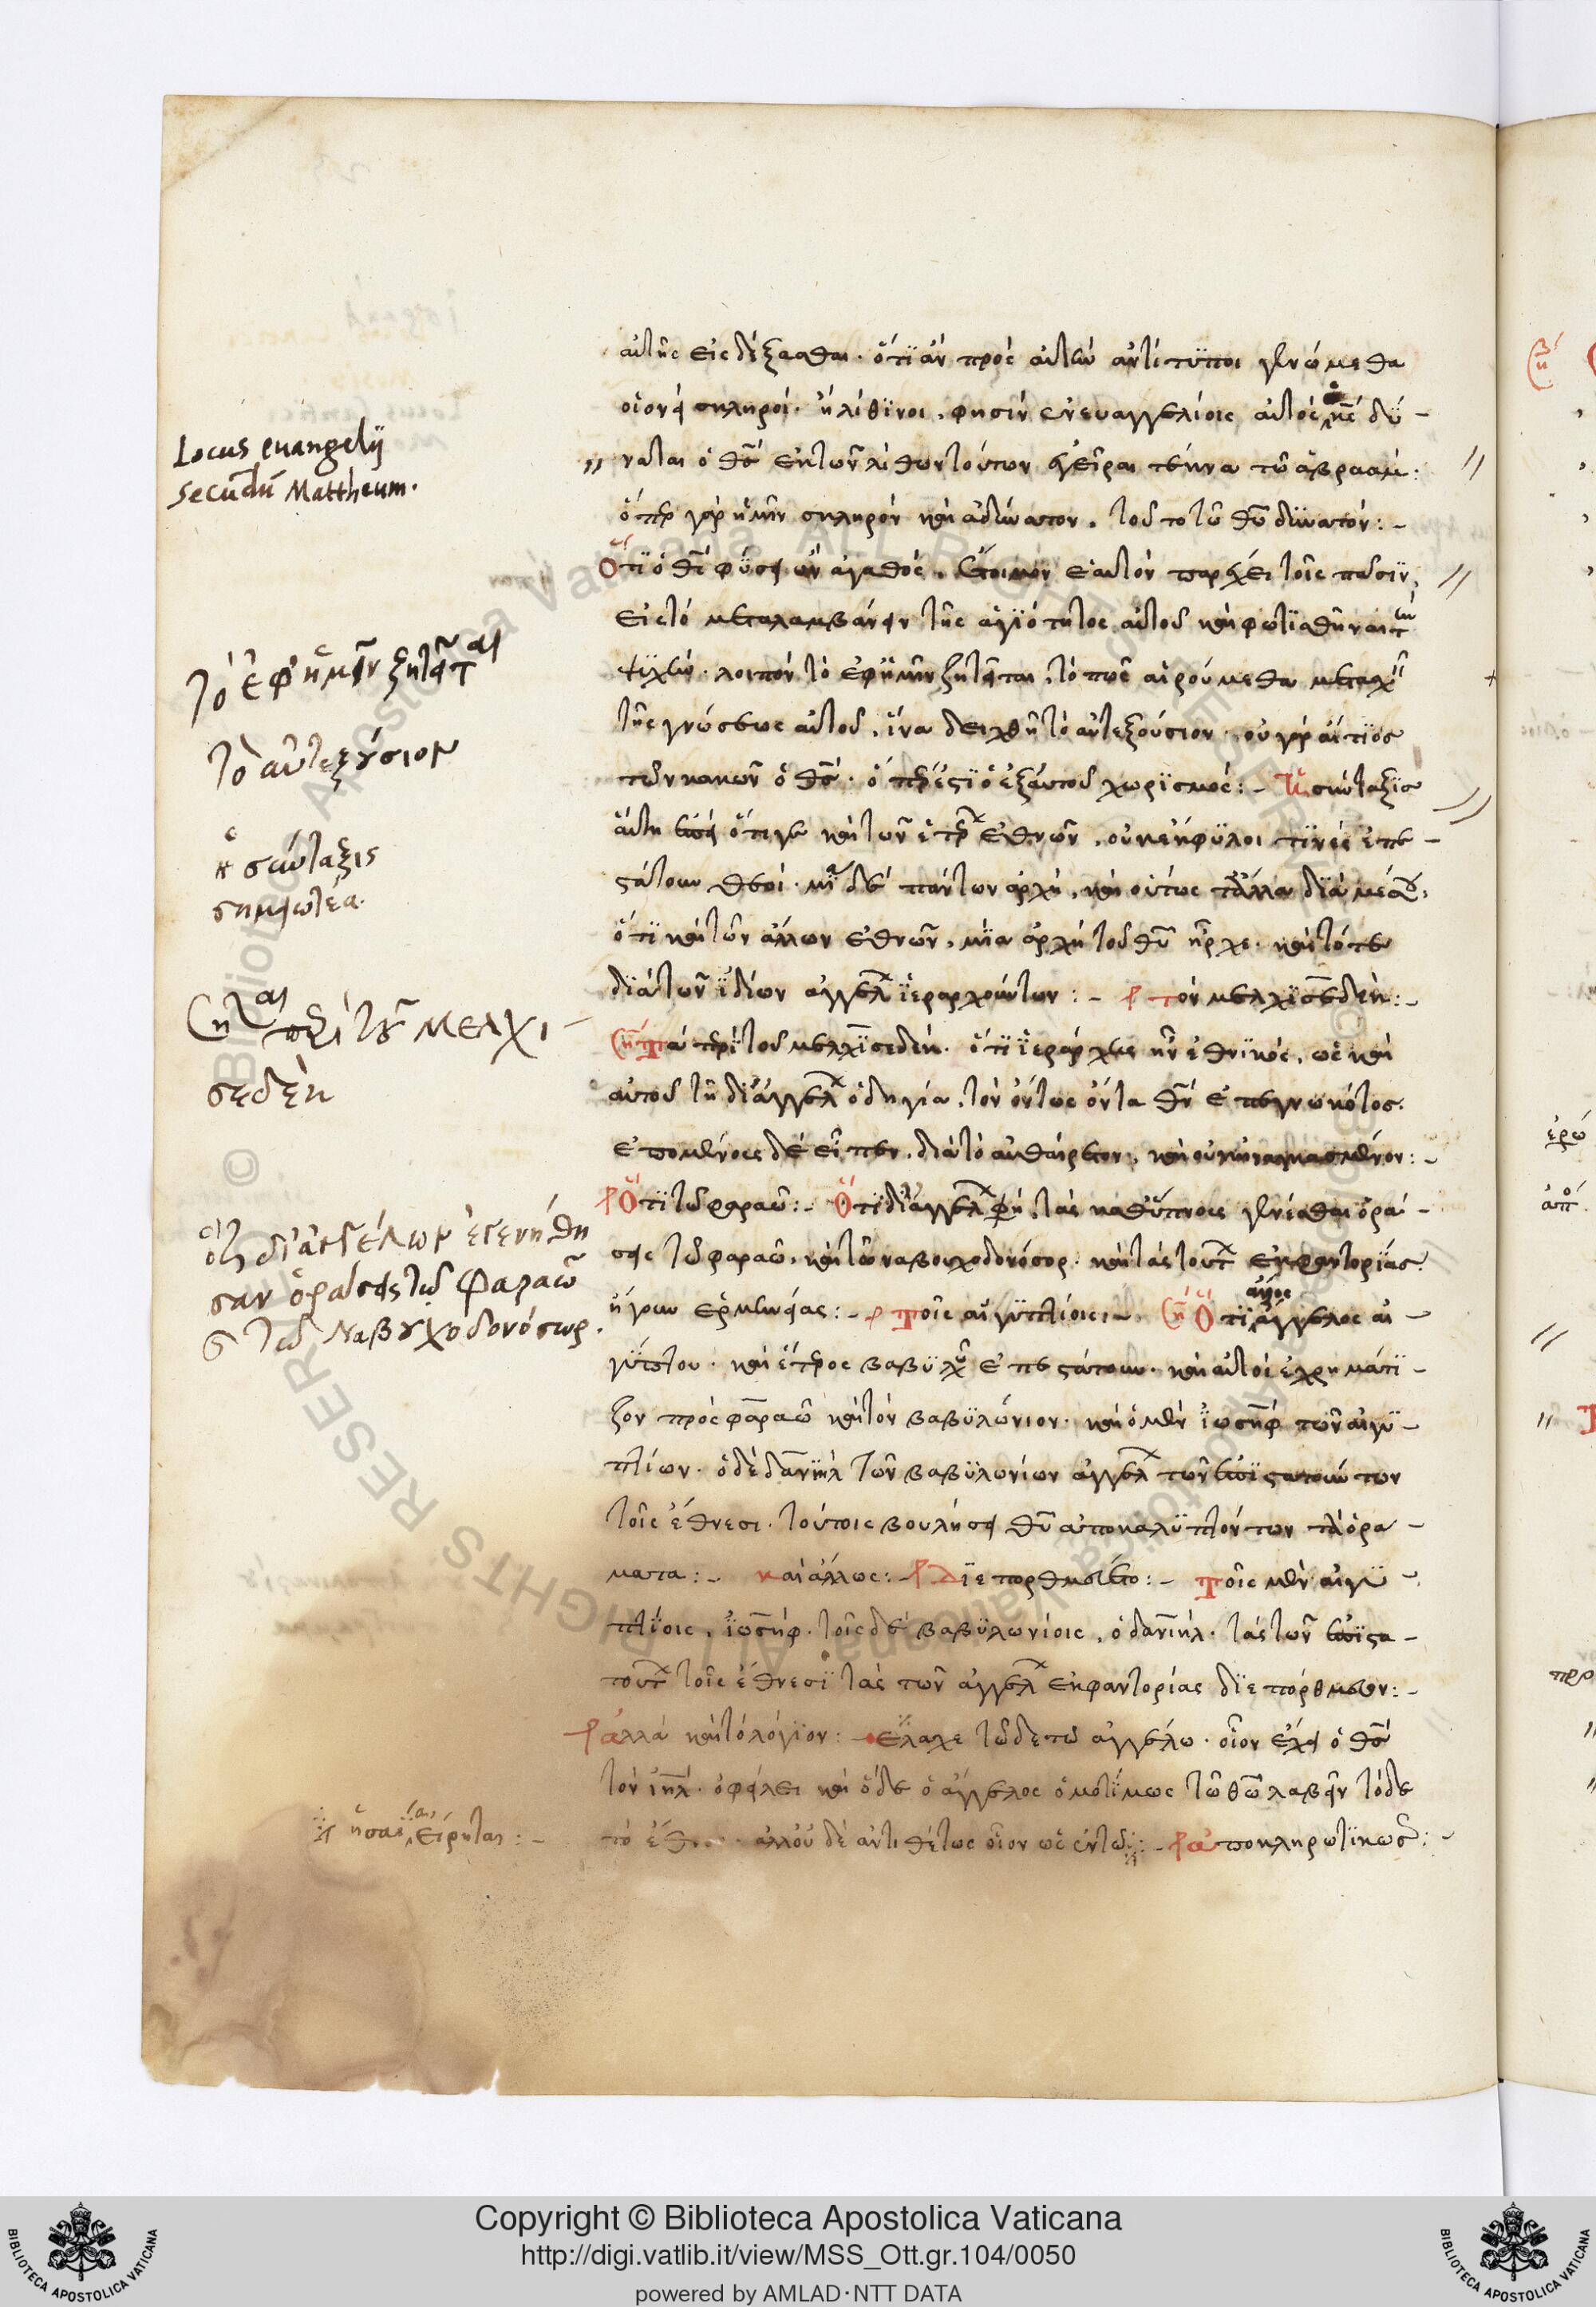 Locus evangelij
secūdū Mattheum.
Τὸ ἐφ' ἡμῖν ζητεῖται
τὸ αὐτεξούσιον
ἡ σύνταξις
σημειωτέα.
περὶ τοῦ Μελχι-
σεδὲκ
ὅτι δι' ἀγγέλων ἐγενήθη
σαν ὁράσεις τῷ Φαραῶ
τῷ Ναβουχοδονόσωρ.
αὐτῆς εἰσδέξασθαι. ὅτι ἂν πρὸς αὐτὴν ἀντίτυποι γινώμεθα
οἱονεὶ σκληροί. ἢ λίθινοι. φησὶν ἐν εὐαγγελίοις αὐτὸς δύ-
ναται ὁ θς ἐκ τῶν λίθων τούτων ἐγεῖραι τέκνα τῷ ἀβραάμ:
ὅπερ γὰρ ἡμῖν σκληρὸν καὶ ἀδύνατον. τοῦτο τῷ θῶ δυνατόν:-
Ὅτι ὁ θς φύσει ὢν ἀγαθὸς. ἕτοιμον ἑαυτὸν παρέχει τοῖς πᾶσιν,
εἰς τὸ μεταλαμβάνειν τῆς ἁγιότητος αὐτοῦ καὶ φωτισθῆναι τὴν
ψυχήν. λοιπὸν τὸ ἐφ' ἡμῖν ζητεῖται, τὸ πῶς αἱρούμεθα μετασχεῖν
τῆς γνώσεως αὐτοῦ, ἵνα δειχθῇ τὸ αὐτεξούσιον. οὐ γὰρ αἴτιος
τῶν κακῶν ὁ θς. ὅπερ ἐστὶ ὁ ἐξ αὐτοῦ χωρισμός:- Ἡ σύνταξις
αὕτη ἐστὶ ὅτι γε καὶ τῶν ἑτέρων ἐθνῶν. οὐκ ἔκφυλοι τινὲς ἐπε-
στάτουν θεοί. μία δὲ πάντων ἀρχή, καὶ οὕτως τἄλλα διὰ μέσου.
ὅτι καὶ τῶν ἄλλων ἐθνῶν, μία ἀρχὴ τοῦ θῦ ἦρχε. καὶ τότε
διὰ τῶν ἰδίων ἀγγέλ ἱεραρχούντων:- τὸν μελχισεδέκ:-
περὶ τοῦ μελχισεδέκ. ὅτι ἱεράρχης ἦν ἐθνικός, ὡς καὶ
αὐτοῦ τῇ δι' ἀγγέλ ὁδηγία, τὸν ὄντως ὄντα θν ἐπεγνωκότος.
ἑπομένοις δὲ εἶπεν. διὰ τὸ αὐθαίρετον, καὶ οὐκ ἠναγκασμένον:-
Ὅτι τῷ φαραώ:- Ὅτι δι' ἀγγέλ φη, τὰς καθ' ὕπνοις γενέσθαι ὁρά-
σεις τῷ φαραώ. καὶ τῷ ναβουχοδονόσορ. καὶ τὰς τούτ ἐκφαντορίας
ἤγουν ἑρμηνείας:- Τοῖς αἰγυπτίοις:- Ὅτι ἄγγελος αἰ-
γύπτου. καὶ ἕτερος βαβυλ ἐπεστάτουν. καὶ αὐτοὶ ἐχρημάτι-
ζον πρὸς φαραὼ καὶ τὸν βαβυλώνιον. καὶ ὁ μὲν ἰωσὴφ τῶν αἰγυ-
πτίων. ὁ δὲ δανιὴλ τῶν βαβυλωνίων ἀγγέλ τῶν ἐπιστατούντων
τοῖς ἔθνεσι. τούτοις βουλήσει θῦ ἀποκαλυπτόντων τὰ ὁρά-
ματα:- καὶ ἄλλως:- Διεπορθμεύετο:- Τοῖς μὲν αἰγυ-
πτίοις, ἰωσήφ. τοῖς δὲ βαβυλωνίοις, ὁ δανιήλ. τὰς τῶν ἐπιστα-
τούντ τοῖς ἔθνεσι τὰς τῶν ἀγγέλ ἐκφαντορίας διεπόρθμευον:-
ἀλλὰ καὶ τὸ λόγιον:- ἔλαχε τῷδε τῷ ἀγγέλῳ. οἷον ἔχει ὁ θς
τὸν ιηλ. ὀφείλει καὶ ὅδε ὁ ἄγγελος ὁμοτίμως τῷ θῷ λαβεῖν τόδε
τὸ ἔθνος. ἀλλ' οὐδὲ ἀντιθέτως οἷον ὡς ἐν τῷ :- ἀποκληρωτικῶς:-
ἡσαΐα, εἴρηται:-
Copyright © Biblioteca Apostolica Vaticana
http://digi.vatlib.it/view/MSS_Ott.gr.104/0050
powered by AMLAD·NTT DATA